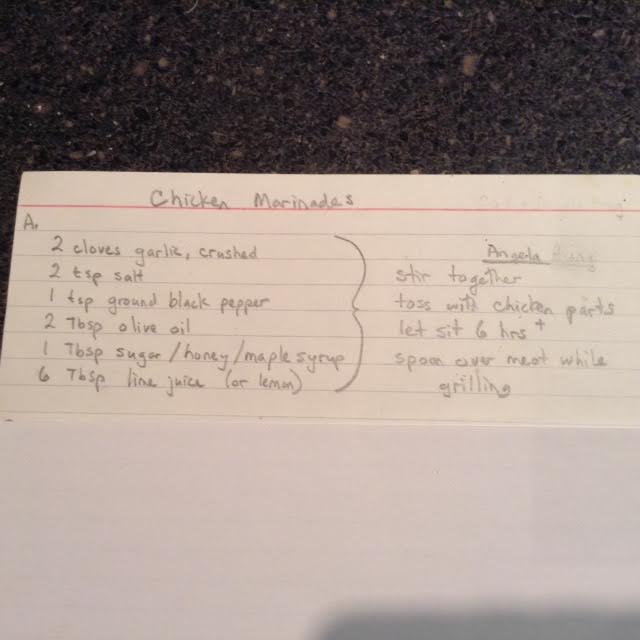 Chicken Marinades
A.
2 cloves garlic, crushed
2 tsp salt
1 tsp ground black pepper
2 Tbsp olive oil
1 Tbsp sugar/honey/maple syrup
6 Tbsp lime juice (or lemon)
Angela
stir together
toss with chicken parts
let sit 6 hrs +
spoon over meat while
grilling